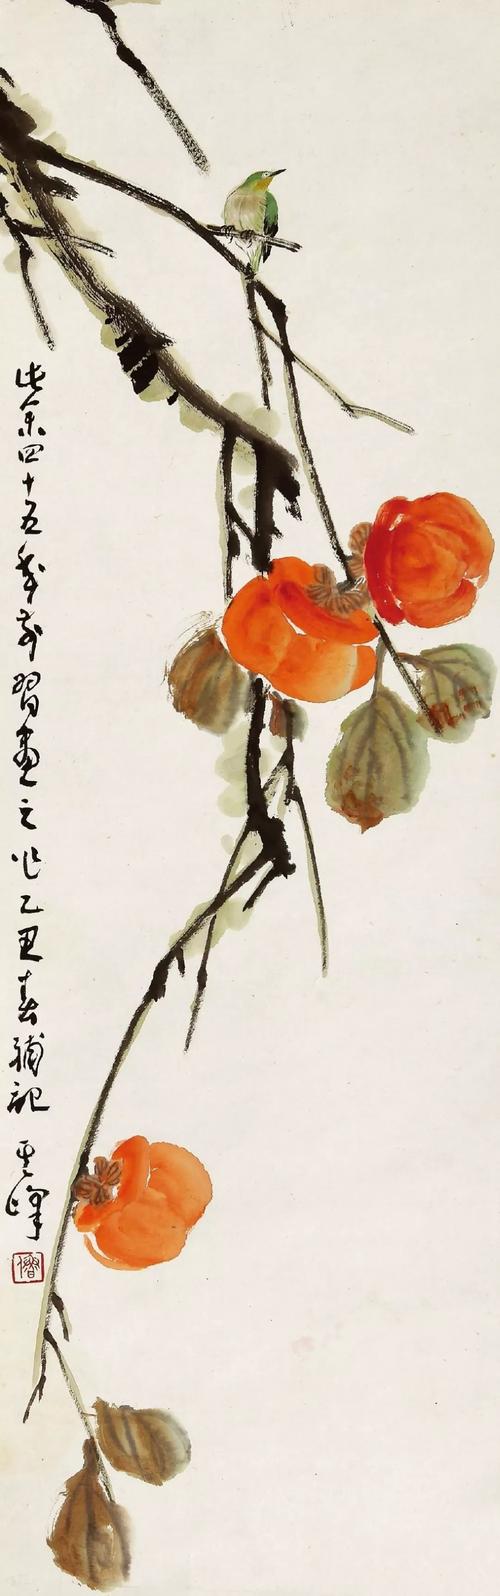 此余四十五年前習畫之作乙丑春補記